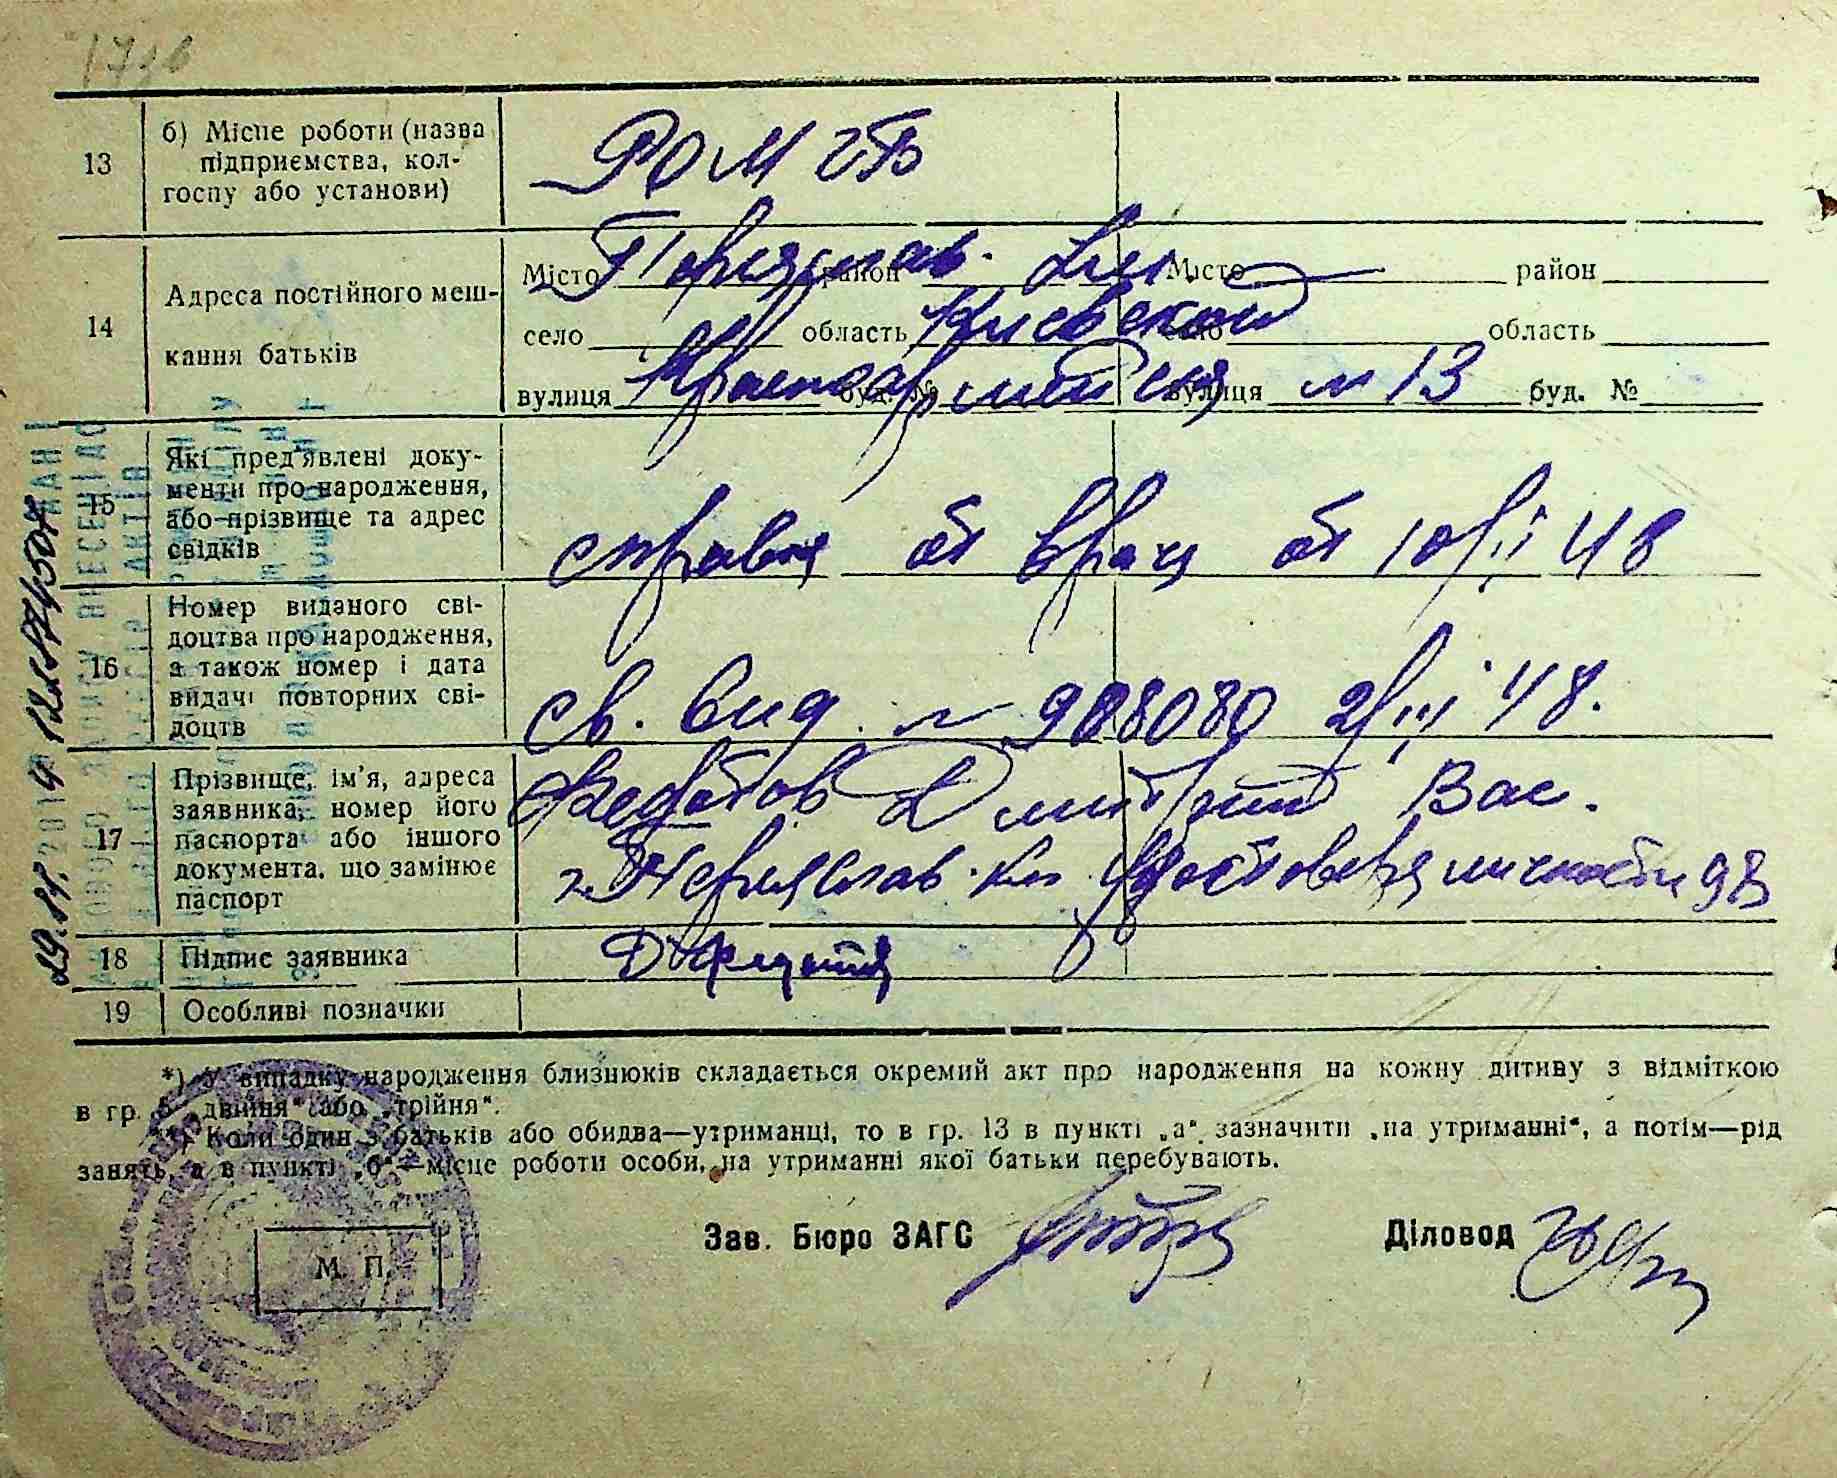 13
б) Місце роботи (назва
підприємства, кол-
госпу або установи)
РОМ
14
Адреса постійного меш-
кання батьків
Місто Переяслав. район Місто район
село область Киевской село область
вулиця Красноармейская буд. № вулиця № 13 буд. №
15
Які пред'явлені доку-
менти про народження,
або прізвище та адрес
свідків
справка от врача от 10/II 48
16
Номер виданого сві-
доцтва про народження,
а також номер і дата
видачі повторних сві-
доцтв
св. выд. № 988080 2/III 48.
17
Прізвище, ім'я, адреса
заявника, номер його
паспорта або іншого
документа, що замінює
паспорт
Федотов Дмитрий Вас.
г. Переяслав-Хм личности 98
18
Підпис заявника
19
Особливі позначки
*) У випадку народження близнюків складається окремий акт про народження на кожну дитину з відміткою
в гр. 5 „двійня" або „трійня".
**) Коли один з батьків або обидва—утриманці, то в гр. 13 в пункті „а" зазначити „на утриманні", а потім—рід
занять, а в пункті „б"—місце роботи особи, на утриманні якої батьки перебувають.
Зав. Бюро ЗАГС
Діловод
М. П.